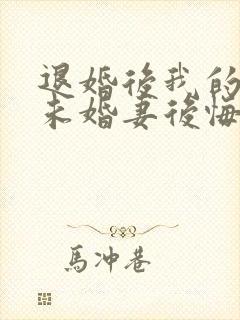 退婚後我的
未婚妻後悔
馬冲巷